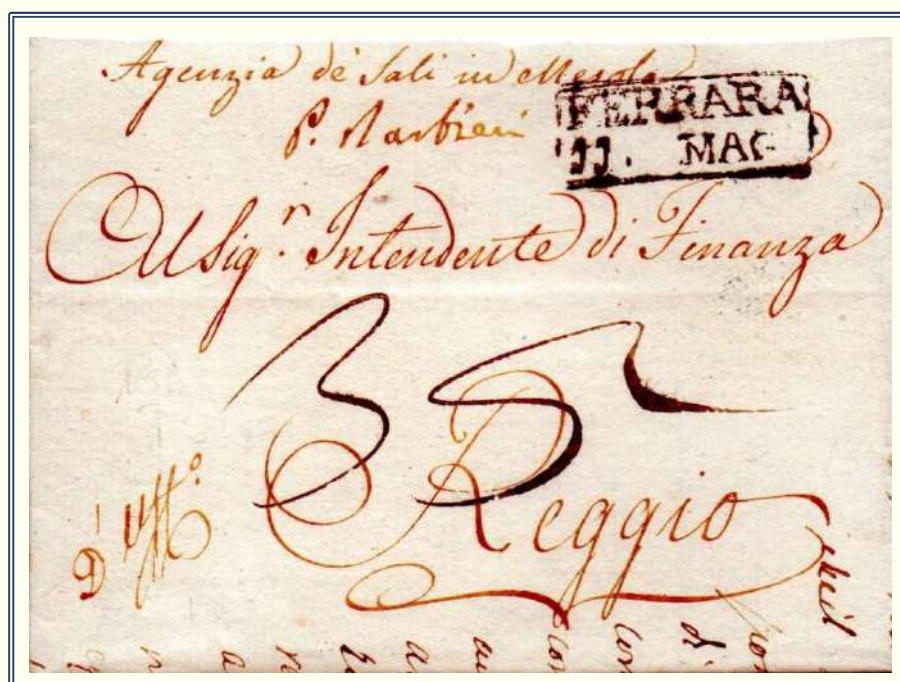 Agenzia de Sali in Mesola
P. Barbieri
FERRARA
11. MAG
Al Sig.r Intendente di Finanza
35
Reggio
D'Uff.o